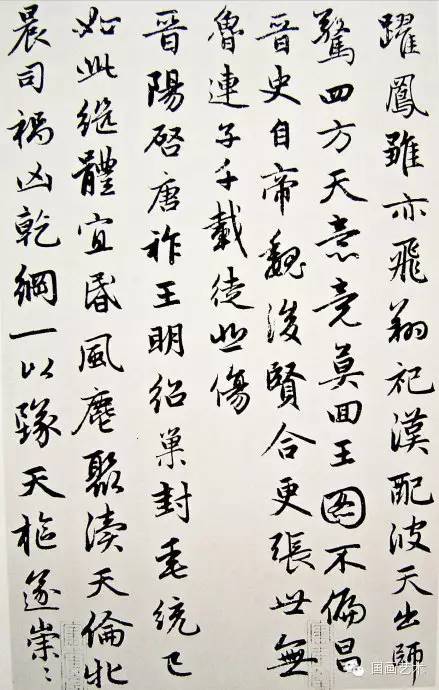 躍鳳雛亦飛翔祀漢配彼天出師
驚四方天意竟莫回王圖不偏昌
晉史自帝魏後賢合更張世無
魯連子千載徒悲傷
晉陽啓唐祚王明紹巢封垂統已
如此繼體宜昬風麀聚瀆天倫牝
晨司禍凶乾綱一以墜天樞遂崇〻
国画艺术